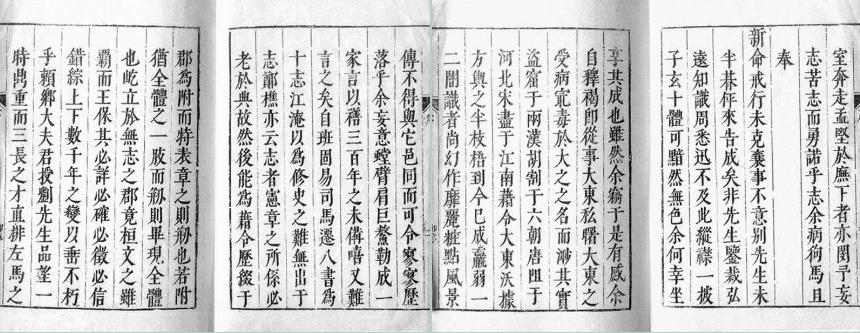 室奔走孟堅於廡下者亦閔予妄
志苦志而勇諾乎志余病狗馬且
奉
新命戒行未克襄事不意别先生未
半朞伻來告成矣非先生鑒裁弘
遠知識周悉迅不及此縱襟一披
子玄十體可黯然無色余何幸坐
享其成也雖然余竊于是有感余
自釋褐即從事大東私曙大東之
受病寃毒於大之之名而渉其實
盜窟于兩漢胡割于六朝唐阻于
河北宋盡于江南藉令大東沃據
方輿之半枝梧到今已成羸弱一
二闇識者尚幻作靡麗粧點風景
傳不得與它邑同而可令寥寥歷
落乎余妄意螳臂肩巨鰲勒成一
家言以禆三百年之未備嘻又難
言之矣自班固易司馬遷八書為
十志江淹以為修史之難無出于
志鄭樵亦云志者憲章之所係必
老於典故然後能為藉令歷綴于
郡為附而特表章之則剏也若附
猶全體之一肢而剏則畢現全體
也屹立於無志之郡竟桓文之雖
覇而王保其必詳必確必徵必信
錯綜上下數千年之變以垂不朽
乎頼鄉大夫君授劉先生品望一
時鼎重而三長之才直排左馬之